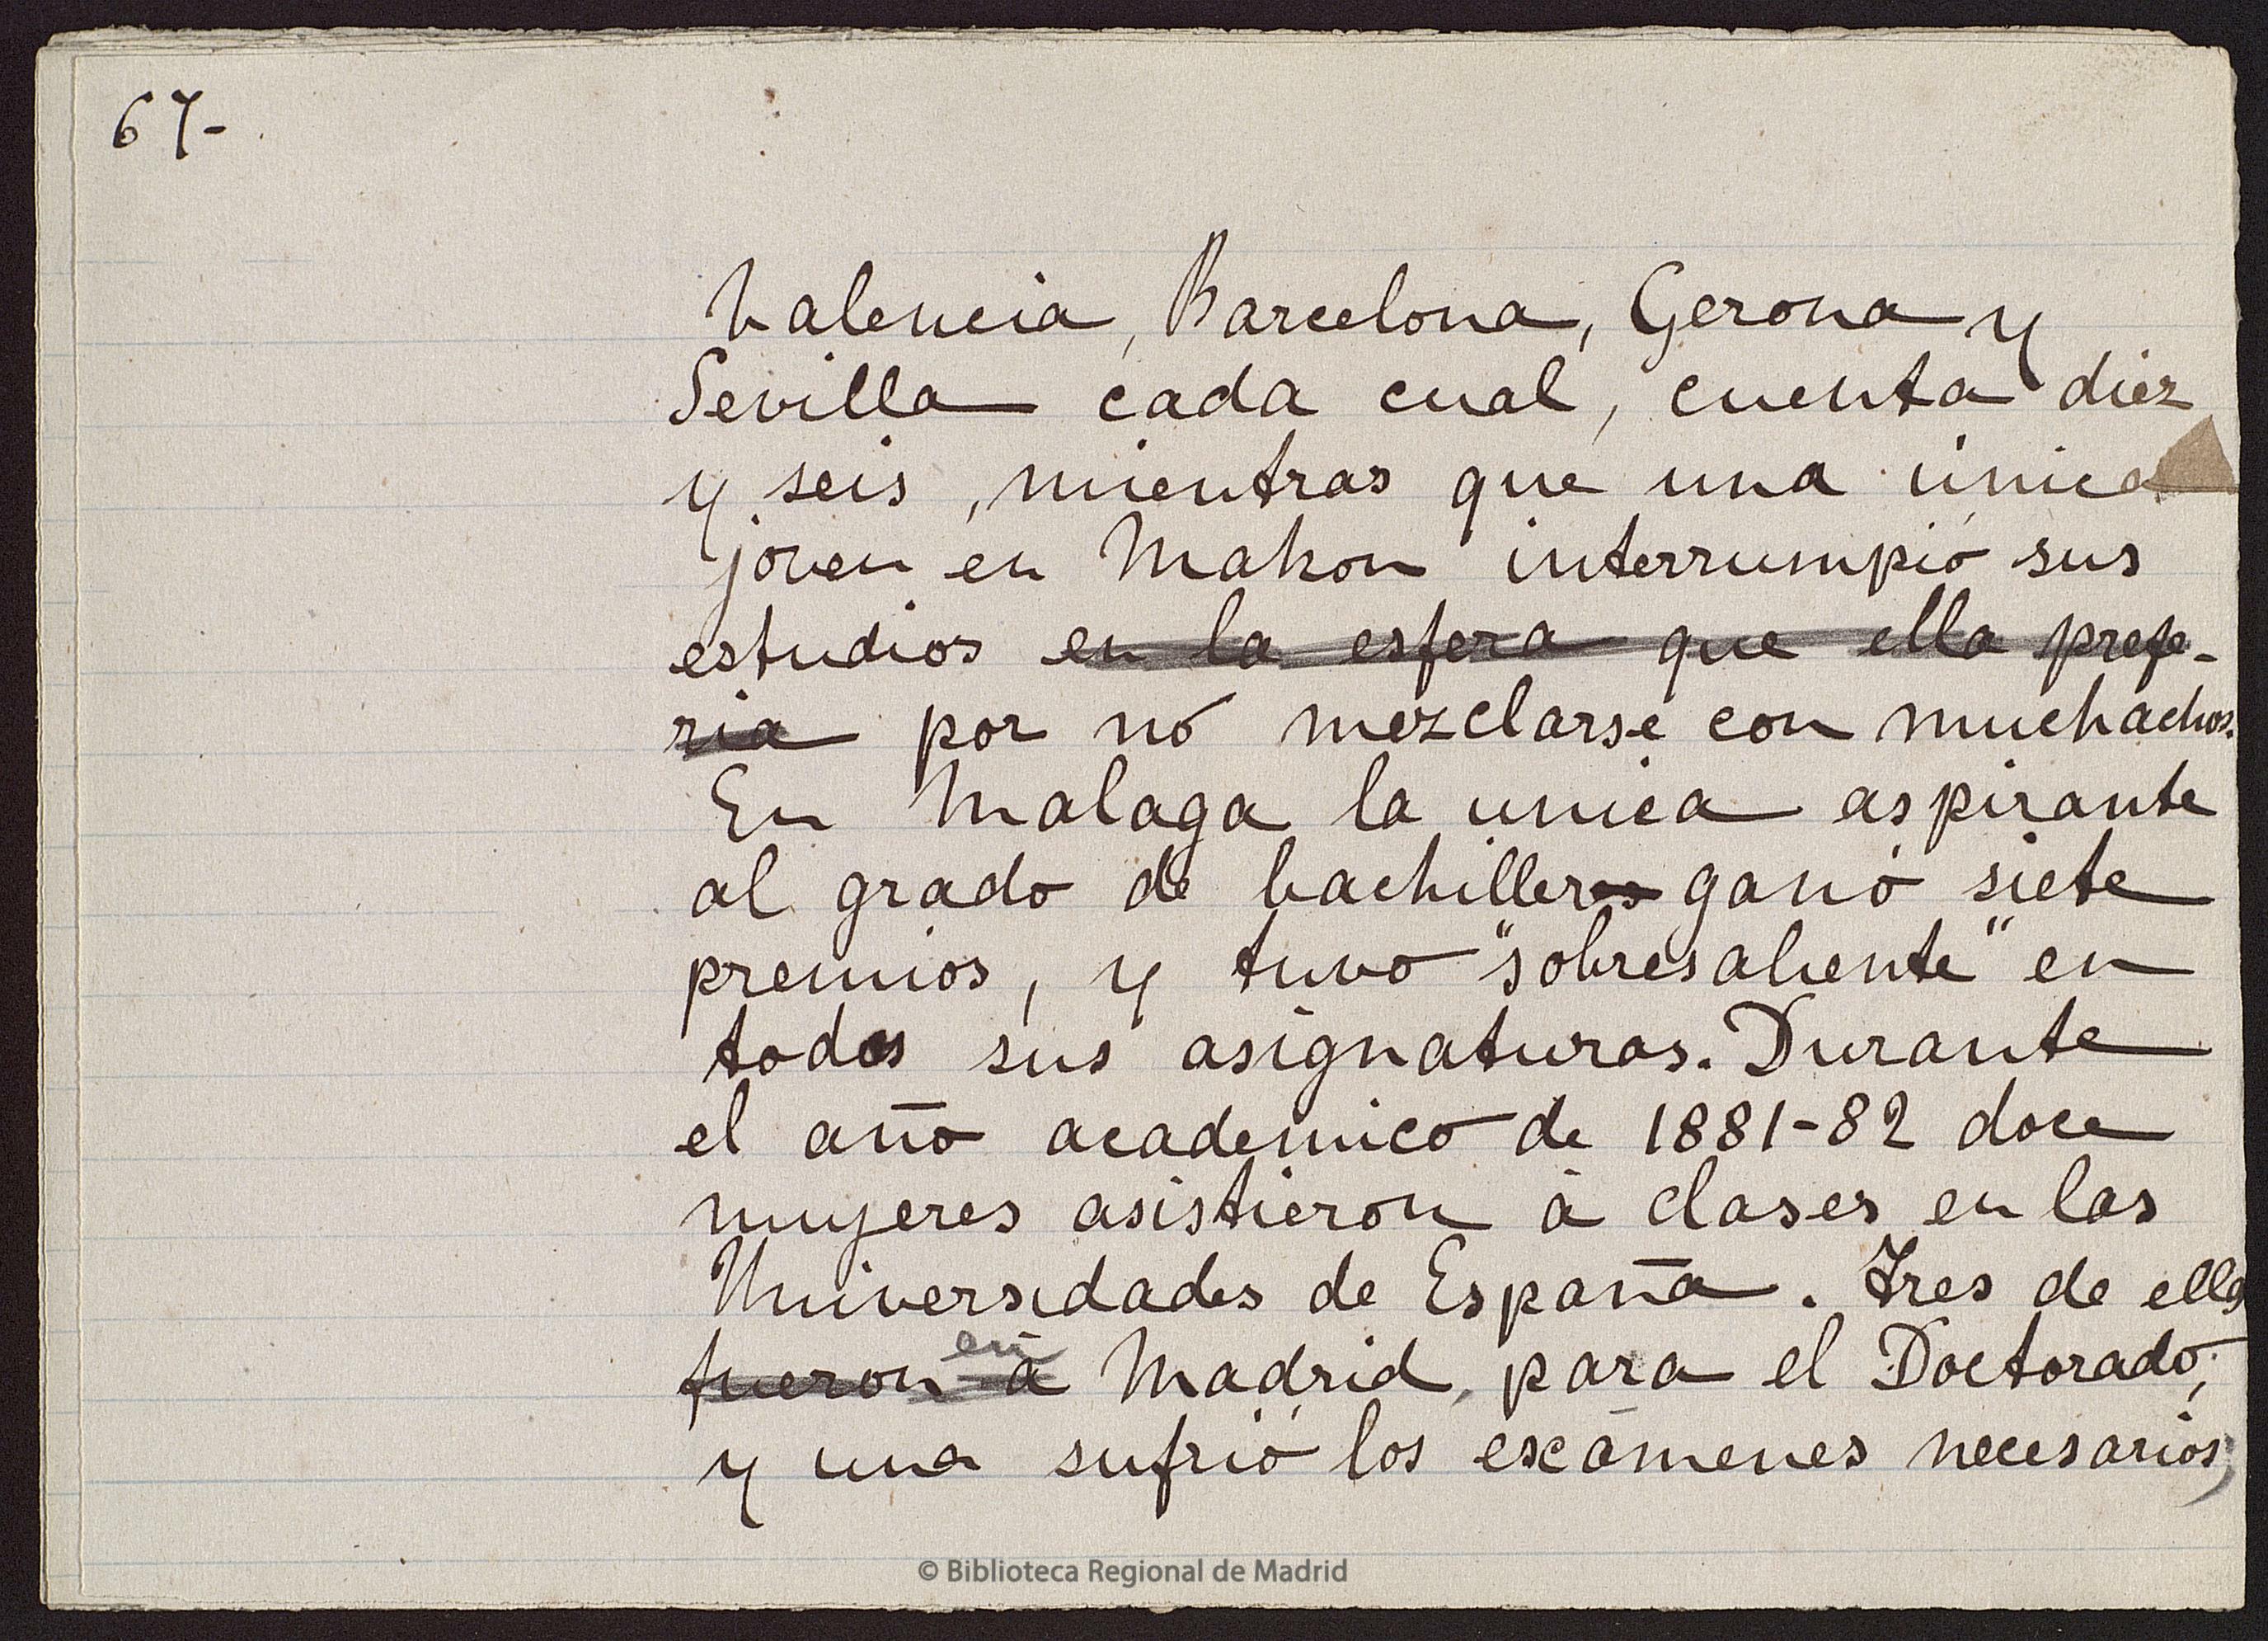 67-
Valencia, Barcelona, Gerona y
Sevilla cada cual, cuenta diez
y seis, mientras que una única
joven en Mahon interrumpió sus
estudios en la esfera que ella prefe-
ria por nó mezclarse con muchachos.
En Malaga la unica aspirante
al grado de bachilleras ganó siete
premios, y tuvo "sobresaliente" en
todas sus asignaturas. Durante
el año academico de 1881-82 doce
mujeres asistieron á clases en las
Universidades de España. Tres de ellas
en
fueron á Madrid, para el Doctorado,
y una sufrió los exámenes necesarios;
© Biblioteca Regional de Madrid